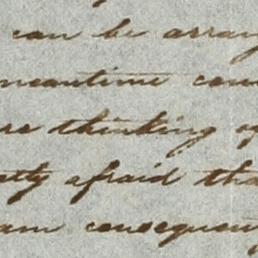 can be arran
meantime con
re thinking of
tly afraid tha
am consequen